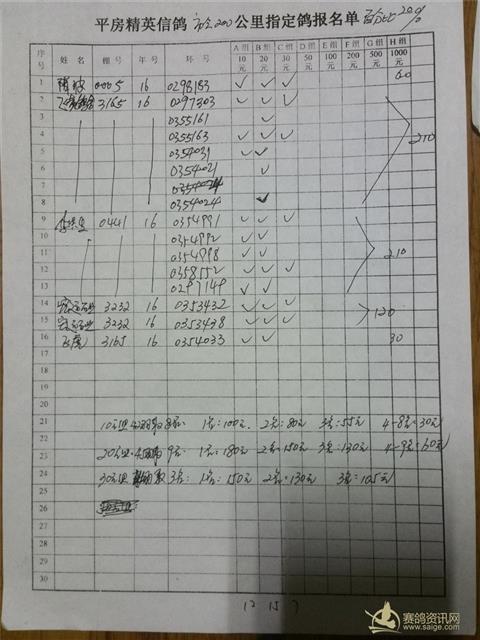 平房精英信鸽 200公里指定鸽报名单 百分比20%
序号 姓名 棚号 年号 环号 A组10元 B组20元 C组30元 D组50元 E组100元 F组200元 G组500元 H组1000元
1 0005 16 0298183 ✓ ✓ ✓ 60
2 3165 16 0297303 ✓ ✓ ✓
3 0355161 ✓
4 0355163 ✓ ✓ ✓
5 0354031 ✓ ✓ 210
6 0354021 ✓
7
8 0354024 ✓
9 0441 16 0354991 ✓ ✓ ✓
10 0354992 ✓ ✓
11 0354998 ✓ ✓ 210
12 0358552 ✓ ✓ ✓
13 0297149 ✓ ✓
14 3232 16 0353432 ✓ ✓ ✓ 120
15 3232 16 0353438 ✓ ✓ ✓
16 飞虎 3165 16 0354033 ✓ ✓ 30
17
18
19
20
21 10元组 1名:100元 2名:80元 3名:55元 4-8名:30元
22
23 20元组 9名: 1名:180元 2名:150元 3名:130元 4-9名:60元
24 30元组 3名: 1名:150元 2名:130元 3名:105元
25
26
27
28
29
30
12 15 7
赛鸽资讯网
www.saige.com